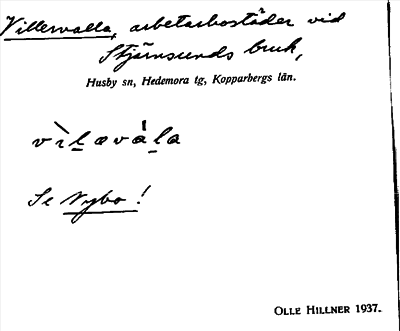 Villervalla, arbetarbostäder vid
Stjärnsunds bruk,
Husby sn, Hedemora tg, Kopparbergs län.
vìl̲ævála̲
Se Nybo!
OLLE HILLNER 1937.